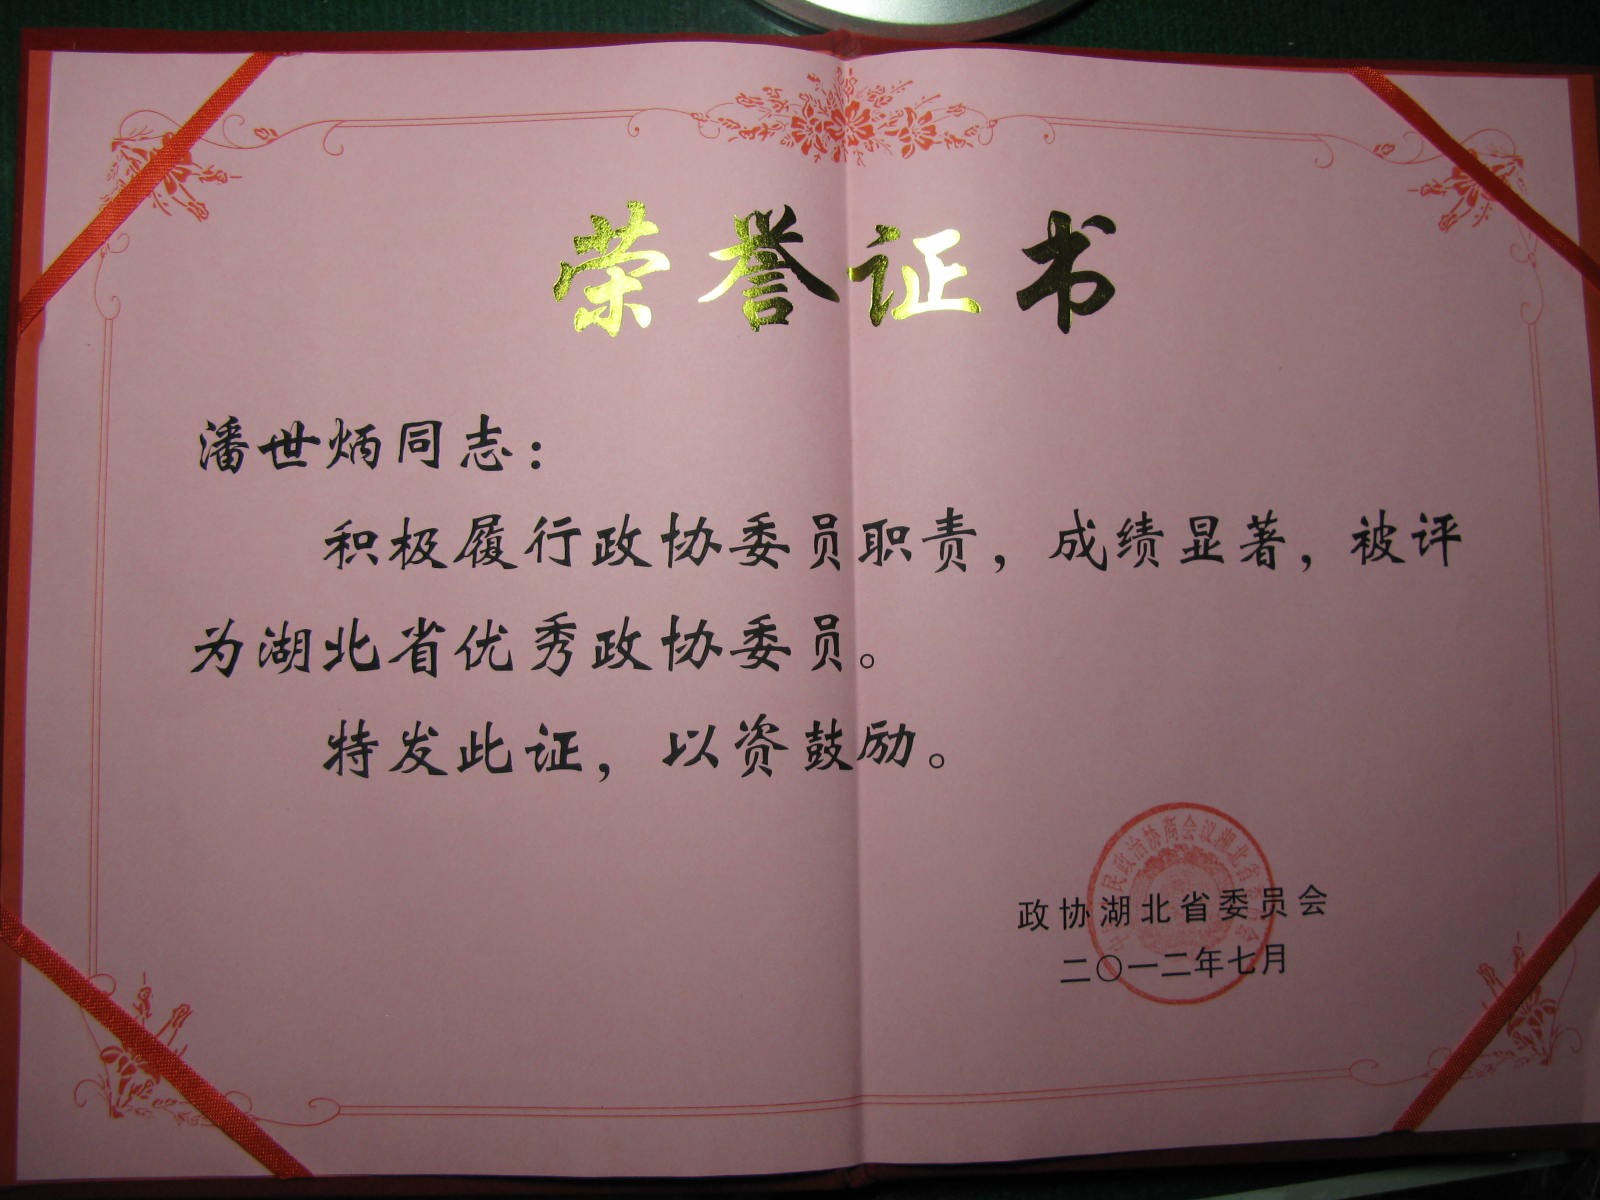 荣誉证书
潘世炳同志：
积极履行政协委员职责，成绩显著，被评
为湖北省优秀政协委员。
特发此证，以资鼓励。
政协湖北省委员会
二〇一二年七月
民政治协商会议湖北省